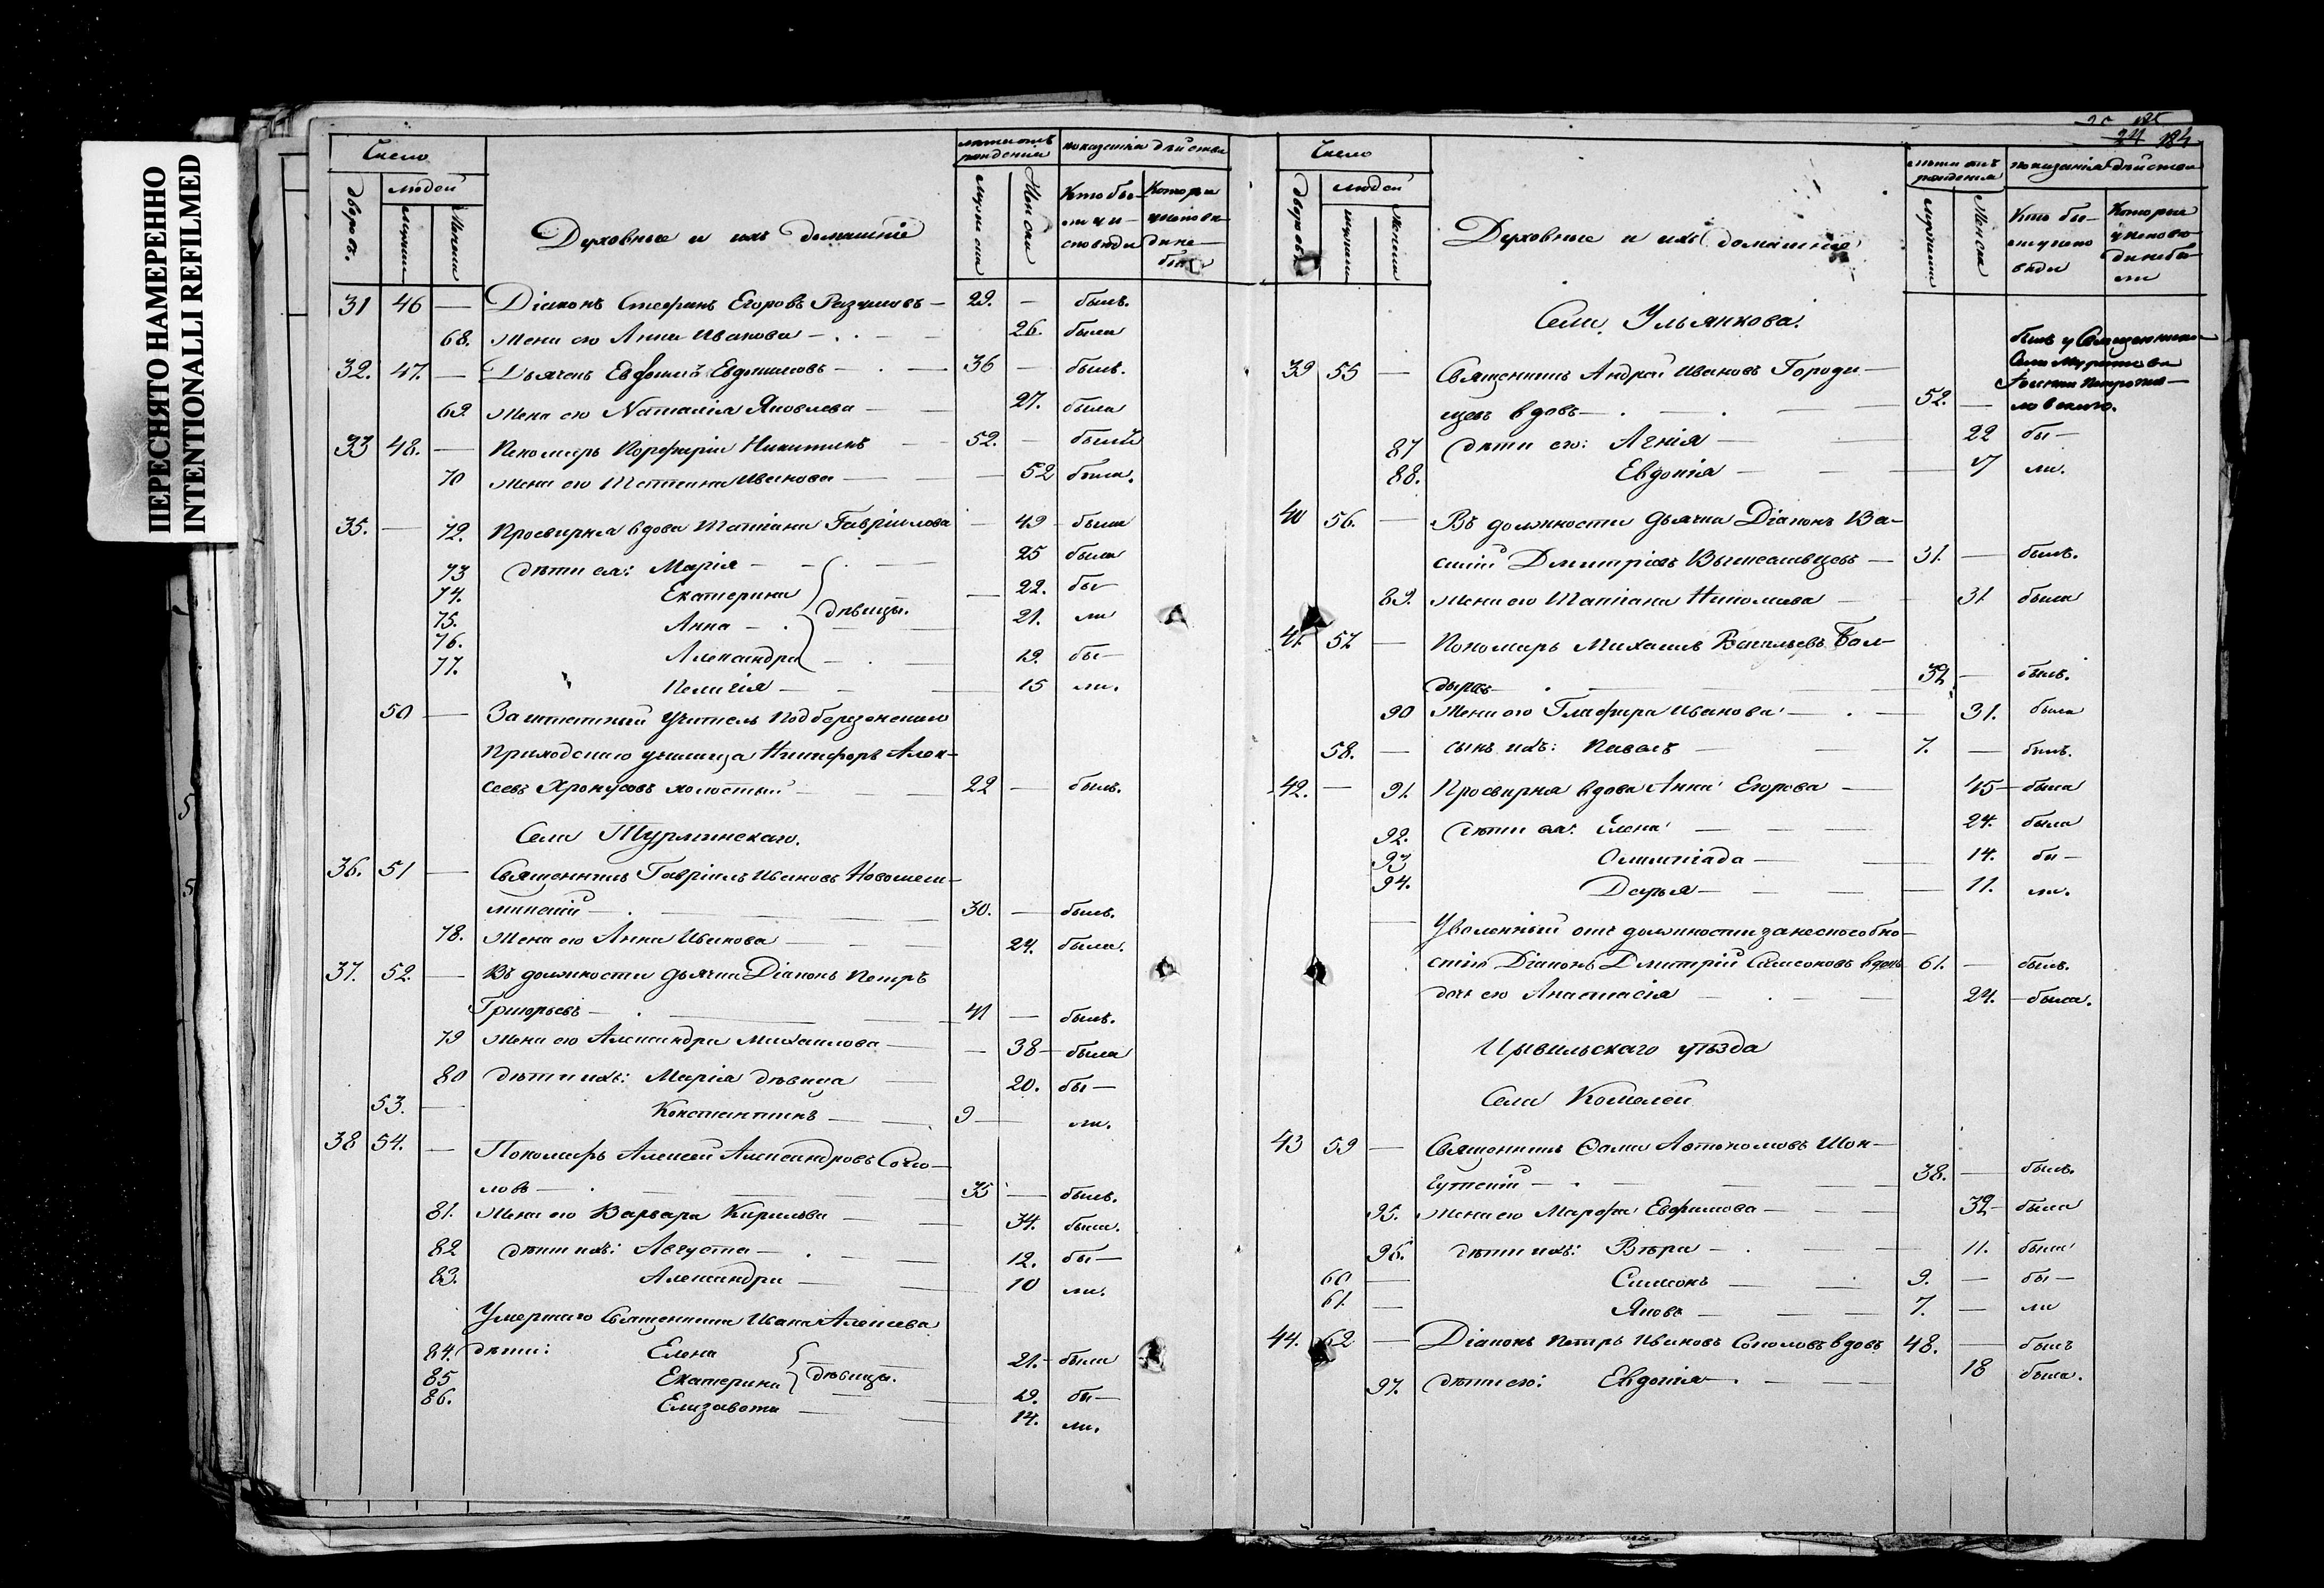 ПЕРЕСНЯТО НАМЕРЕННО
INTENTIONALLI REFILMED
Число
лѣта отъ рожденія
показанія дѣйства
дворовъ.
людей
мужска
женска
Духовные и ихъ домашніе
мужеска
женска
Кто были у исповѣди
Которые у исповѣди не были
31 46 — Діаконъ Стефанъ Егоровъ Разумовъ — 29. — былъ.
68. жена его Анна Иванова — 26. была
32. 47. — Дьячекъ Евфимій Евдокимовъ — 36 — былъ.
69. жена его Наталія Яковлева — 27. была
33 48. — Пономарь Порфирій Никитинъ — 52. — былъ
70 жена его Татіана Иванова — 52 была.
35. — 72. Просвирня вдова Татіана Гавріилова — 49 — была
73 дѣти ея: Марія — 25 была
74. Екатерина — 22. бы—
75. Анна — дѣвицы. 21. ли
76. Александра — 19. бы—
77. Пелагія — 15 ли.
50 — Заштатный учитель Подберезенскаго
Приходскаго училища Никифоръ Алек-
сеевъ Хрокусовъ холостый — 22 — былъ.
Села Турминскаго.
36. 51 — Священникъ Гавріилъ Ивановъ Новошеш-
минскій — 30. — былъ.
78. Жена его Анна Иванова — 24. была.
37. 52. — Въ должности дьячка Діаконъ Петръ
Григорьевъ — 41 — былъ.
79 жена его Александра Михаилова — 38 — была
80 дѣти ихъ: Марія дѣвица — 20. бы—
53. — Константинъ — 9 — ли.
38 54. — Пономарь Алексей Александровъ Соко-
ловъ — 35 — былъ.
81. Жена его Варвара Кирилова — 34. была.
82 дѣти ихъ: Августа — 12. бы—
83. Александра — 10 ли.
Умершаго Священника Ивана Алексеева
84. дѣти: Елена — 21. — была
85 Екатерина — дѣвицы. 19. бы—
86. Елизавета — 14. ли.
24 184
Число
лѣта отъ рожденія
показанія дѣйства
дворовъ
людей
мужска
женска
Духовные и ихъ домашніе
мужеска
женска
Кто были у исповѣди
Которые у исповѣди не были
Села Ульянкова.
39 55 — Священникъ Андрей Ивановъ Городи-
щевъ вдовъ — 52. — былъ у Священника
Села
87 дѣти его: Агнія — 22 бы—
88. Евдокія — 7 ли.
40 56. — Въ должности дьячка Діаконъ Ва-
силій Димитріевъ — 31. — былъ.
89. Жена его Татіана Николаева — 31 была
41. 57 — Пономарь Михаилъ Васильевъ Бал-
дыревъ — 32 — былъ.
90 Жена его Глафира Иванова — 31. была
58. — сынъ ихъ: Павелъ — 7. — былъ.
42. — 91. Просвирня вдова Анна Егорова — 45 — была
92. дѣти ея: Елена — 24. была
93 Олимпіада — 14. бы—
94. Дарья — 11. ли.
— Уволенный отъ должности за неспособно-
стію Діаконъ Димитрій Самсоновъ вдовъ 61. — былъ.
дочь его Анастасія — 24. — была.
Цывильскаго уѣзда
Села Кошелей
43 59 — Священникъ Ѳома Автономовъ Шон-
гутскій — 38. — былъ.
95. Жена его Марфа Евфимова — 32 — была
96. дѣти ихъ: Вѣра — 11. была
60 — Симеонъ — 9. — бы—
61. — Яковъ — 7. — ли
44. 62 — Діаконъ Петръ Ивановъ Соколовъ вдовъ 48. — былъ
97. дѣти его: Евдокія — 18 была.